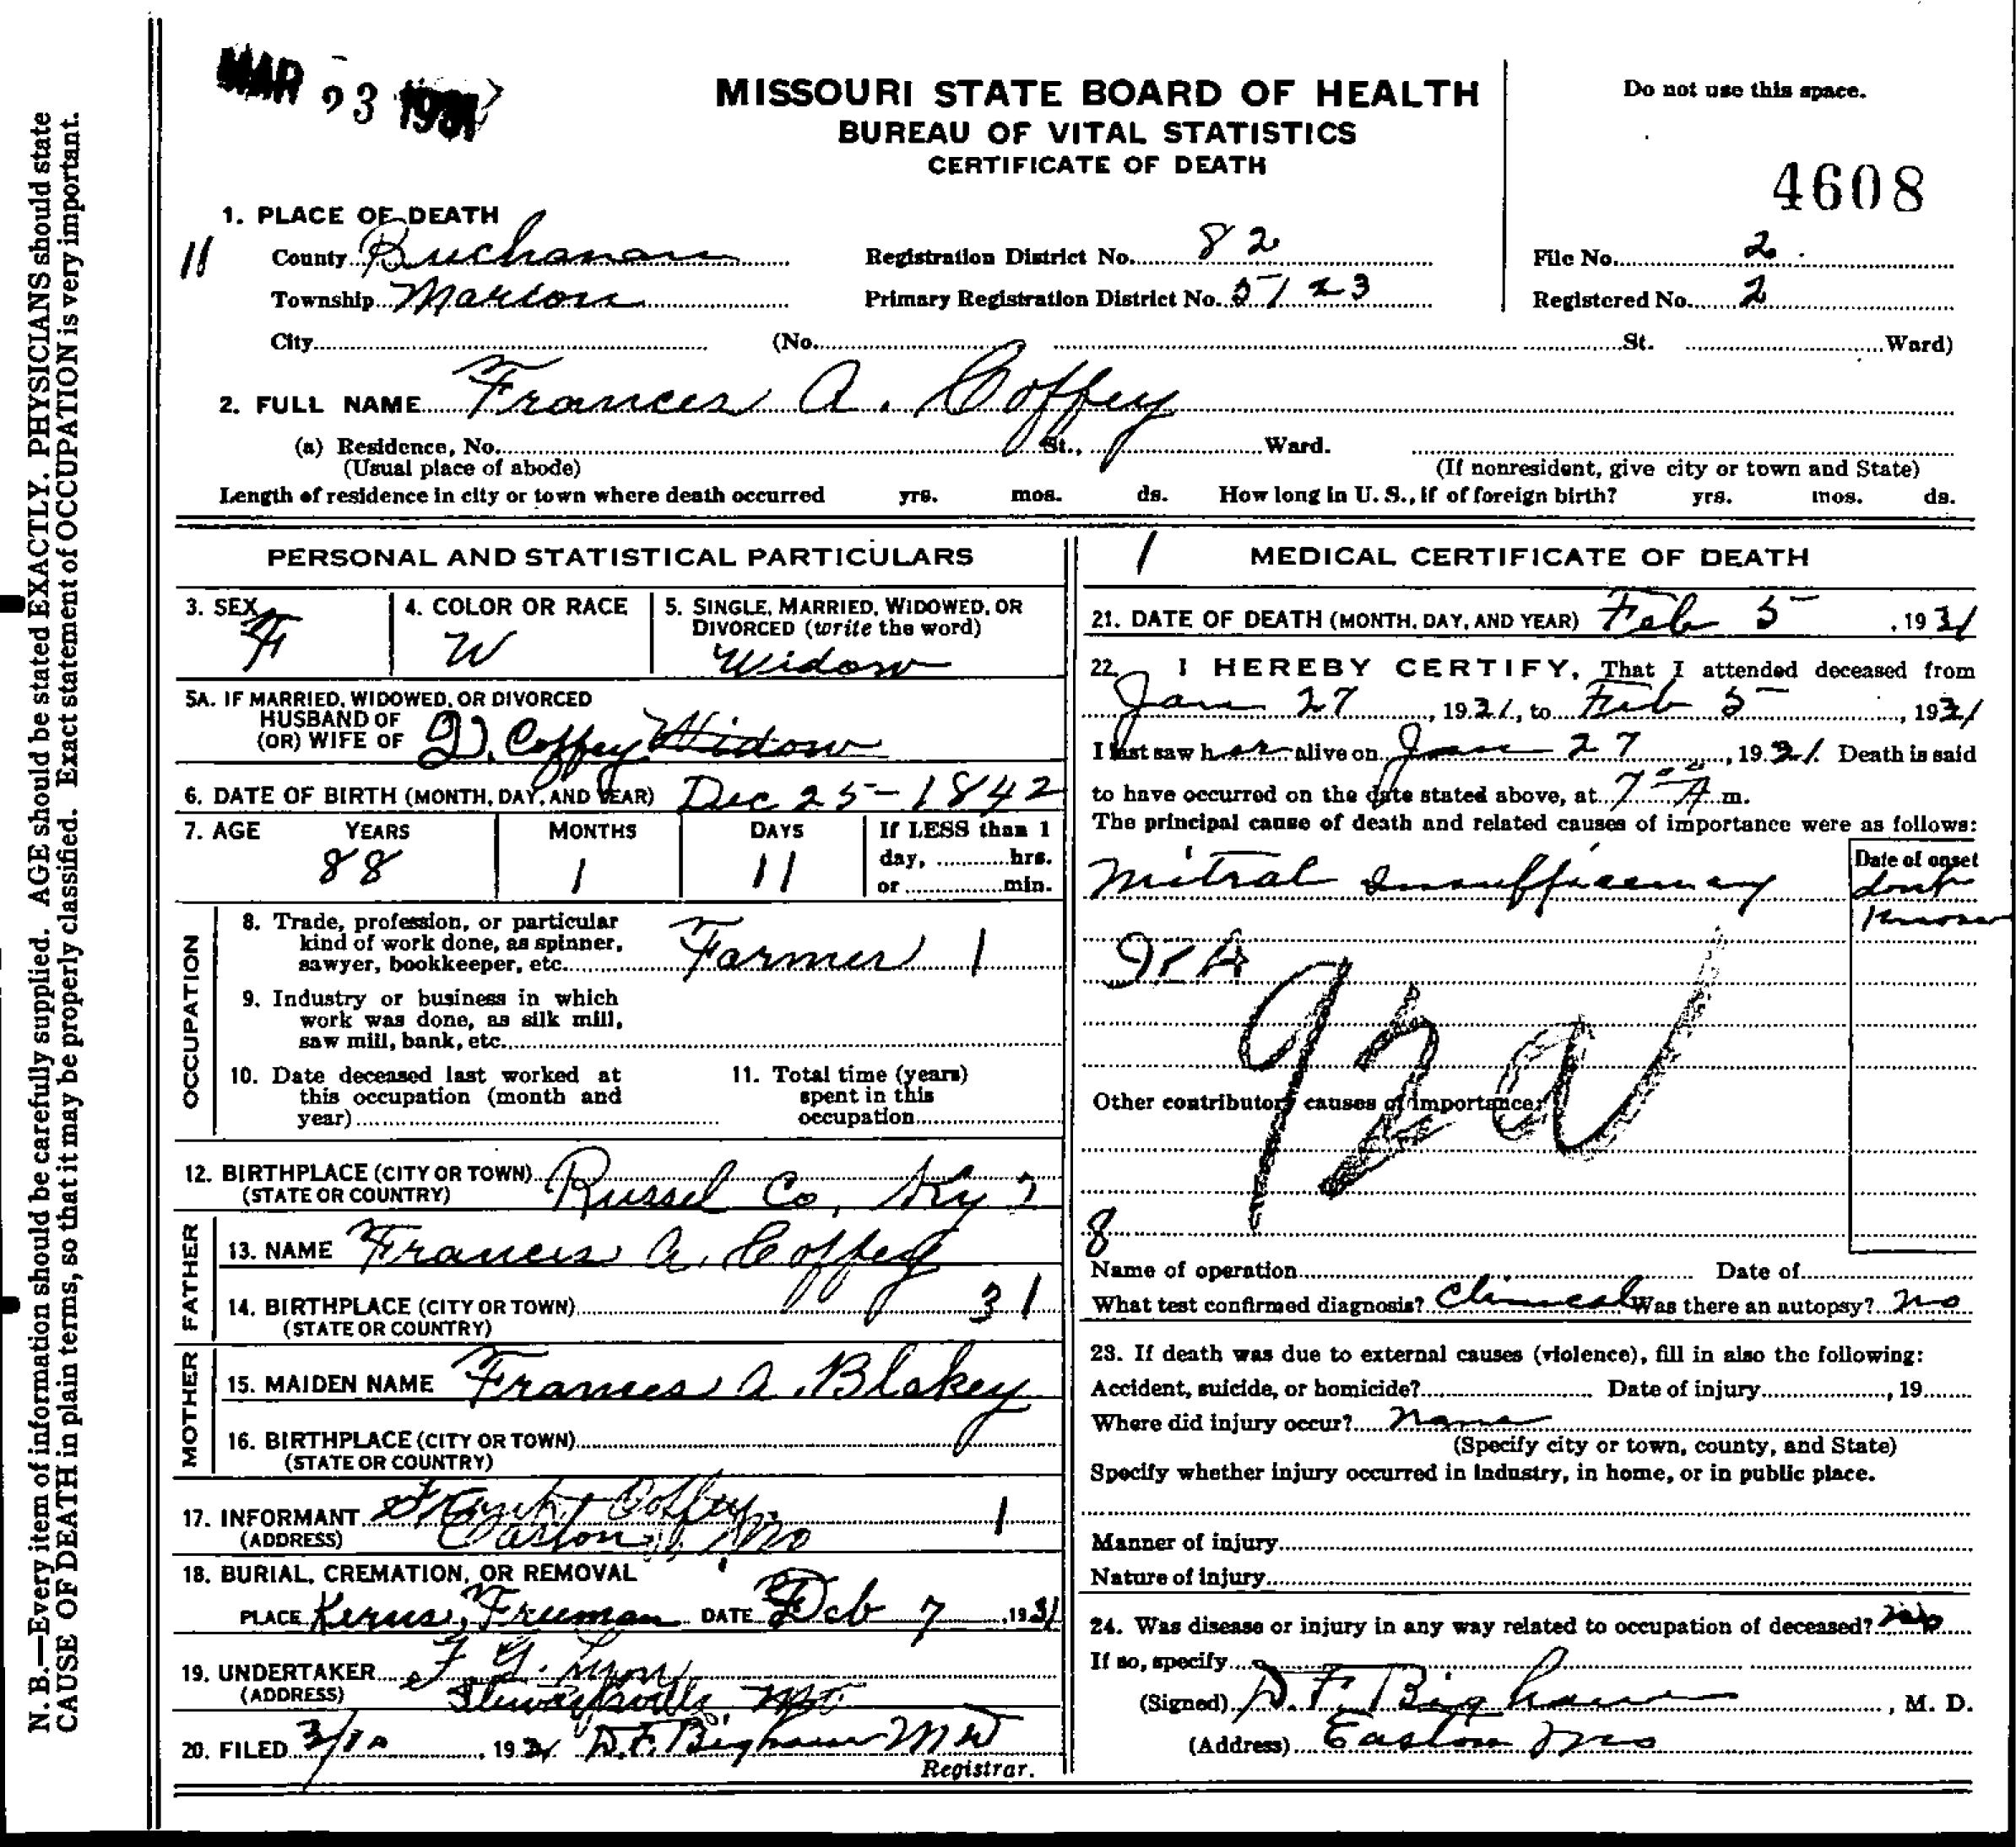 MAR 23 1931
MISSOURI STATE BOARD OF HEALTH
BUREAU OF VITAL STATISTICS
CERTIFICATE OF DEATH
Do not use this space.
4608
1. PLACE OF DEATH
11
County Buchanan Registration District No. 82 File No. 2
Township Marion Primary Registration District No. 5123 Registered No. 2
City (No. St. Ward)
2. FULL NAME Frances A. Coffey
(a) Residence, No. St., Ward.
(Usual place of abode) (If nonresident, give city or town and State)
Length of residence in city or town where death occurred yrs. mos. ds. How long in U. S., if of foreign birth? yrs. mos. ds.
PERSONAL AND STATISTICAL PARTICULARS
3. SEX F
4. COLOR OR RACE W
5. SINGLE, MARRIED, WIDOWED, OR
DIVORCED (write the word)
Widow
5A. IF MARRIED, WIDOWED, OR DIVORCED
HUSBAND OF
(OR) WIFE OF Coffey Widow
6. DATE OF BIRTH (MONTH, DAY, AND YEAR) Dec 25-1842
7. AGE YEARS MONTHS DAYS If LESS than 1
day, hrs.
or min.
88 1 11
OCCUPATION
8. Trade, profession, or particular
kind of work done, as spinner,
sawyer, bookkeeper, etc. Farmer 1
9. Industry or business in which
work was done, as silk mill,
saw mill, bank, etc.
10. Date deceased last worked at
this occupation (month and
year)
11. Total time (years)
spent in this
occupation
12. BIRTHPLACE (CITY OR TOWN) Russel Co, Ky
(STATE OR COUNTRY)
FATHER
13. NAME Francis A. Coffey
14. BIRTHPLACE (CITY OR TOWN) 31
(STATE OR COUNTRY)
MOTHER
15. MAIDEN NAME Frances A. Blakey
16. BIRTHPLACE (CITY OR TOWN)
(STATE OR COUNTRY)
17. INFORMANT Frank Coffey 1
(ADDRESS) Easton Mo
18. BURIAL, CREMATION, OR REMOVAL
PLACE Kerns, Freeman DATE Feb 7, 1931
19. UNDERTAKER F. G. Lyon
(ADDRESS) Stewartsville Mo
20. FILED 3/10, 1931 D.F. Bigham MD
Registrar.
1
MEDICAL CERTIFICATE OF DEATH
21. DATE OF DEATH (MONTH, DAY, AND YEAR) Feb 5, 1931
22. I HEREBY CERTIFY, That I attended deceased from
Jan 27, 1931, to Feb 5, 1931
I last saw her alive on Jan 27, 1931. Death is said
to have occurred on the date stated above, at 7 A m.
The principal cause of death and related causes of importance were as follows:
Date of onset
Mitral Insufficiency dont
Know
92A
92a
Other contributory causes of importance:
8
Name of operation Date of
What test confirmed diagnosis? Clinical Was there an autopsy? no
23. If death was due to external causes (violence), fill in also the following:
Accident, suicide, or homicide? Date of injury, 19
Where did injury occur? None
(Specify city or town, county, and State)
Specify whether injury occurred in industry, in home, or in public place.
Manner of injury
Nature of injury
24. Was disease or injury in any way related to occupation of deceased? no
If so, specify
(Signed) D.F. Bigham, M. D.
(Address) Easton Mo
N. B.—Every item of information should be carefully supplied. AGE should be stated EXACTLY. PHYSICIANS should state
CAUSE OF DEATH in plain terms, so that it may be properly classified. Exact statement of OCCUPATION is very important.